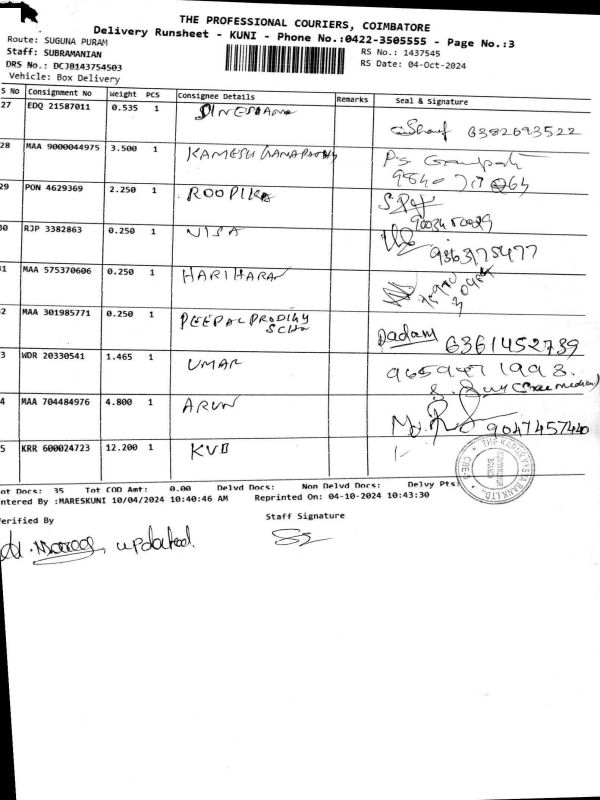 THE PROFESSIONAL COURIERS, COIMBATORE
Delivery Runsheet - KUNI - Phone No.:0422-3505555 - Page No.:3
Route: SUGUNA PURAM
RS No.: 1437545
Staff: SUBRAMANIAN
RS Date: 04-Oct-2024
DRS No.: DCJB143754503
Vehicle: Box Delivery
S No Consignment No Weight PCS Consignee Details Remarks Seal & Signature
27 EDQ 21587011 0.535 1
6382693522
28 MAA 9000044975 3.500 1 KAMESH GANAPATHY
29 PON 4629369 2.250 1 ROOPIKA
30 RJP 3382863 0.250 1 NISA
9363175477
31 MAA 575370606 0.250 1 HARIHARAN
32 MAA 301985771 0.250 1 PEEPAL PRODIGY
SCHO
Dadam 6361452739
3 WDR 20330541 1.465 1 UMAR
4 MAA 704484976 4.800 1 ARUN
9047457440
5 KRR 600024723 12.200 1 KVB
THE KARUR VYSYA BANK LTD.
ot Docs: 35 Tot COD Amt: 0.00 Delvd Docs: Non Delvd Docs: Delvy Pts:
ntered By :MARESKUNI 10/04/2024 10:40:46 AM Reprinted On: 04-10-2024 10:43:30
erified By Staff Signature
updated